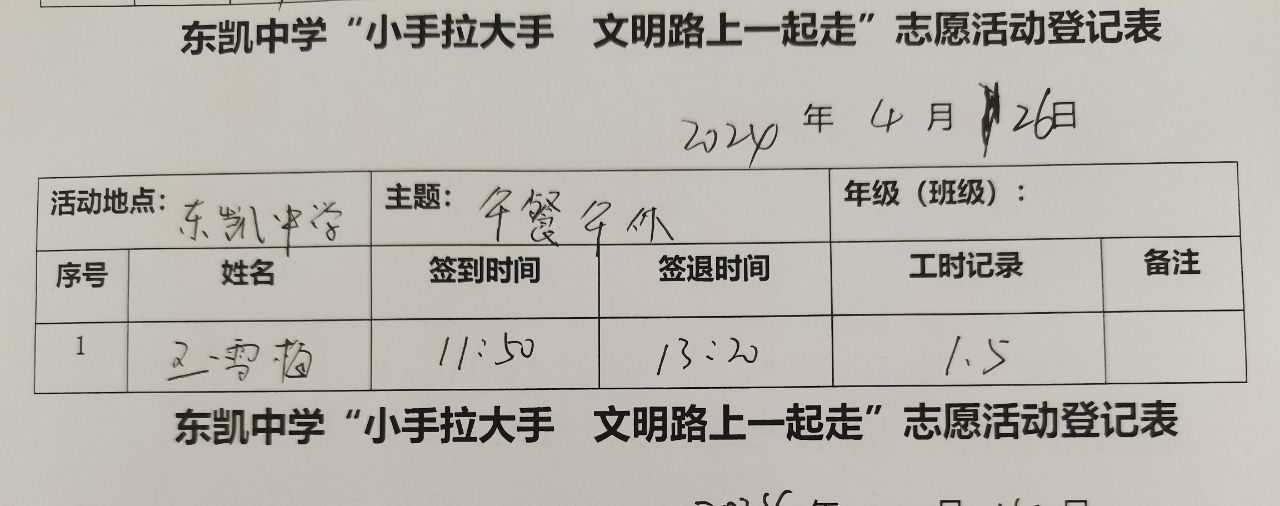 东凯中学“小手拉大手 文明路上一起走”志愿活动登记表
2024 年 4 月 26日
活动地点：东凯中学 主题：午餐午休 年级（班级）：
序号 姓名 签到时间 签退时间 工时记录 备注
1 王雪梅 11:50 13:20 1.5
东凯中学“小手拉大手 文明路上一起走”志愿活动登记表